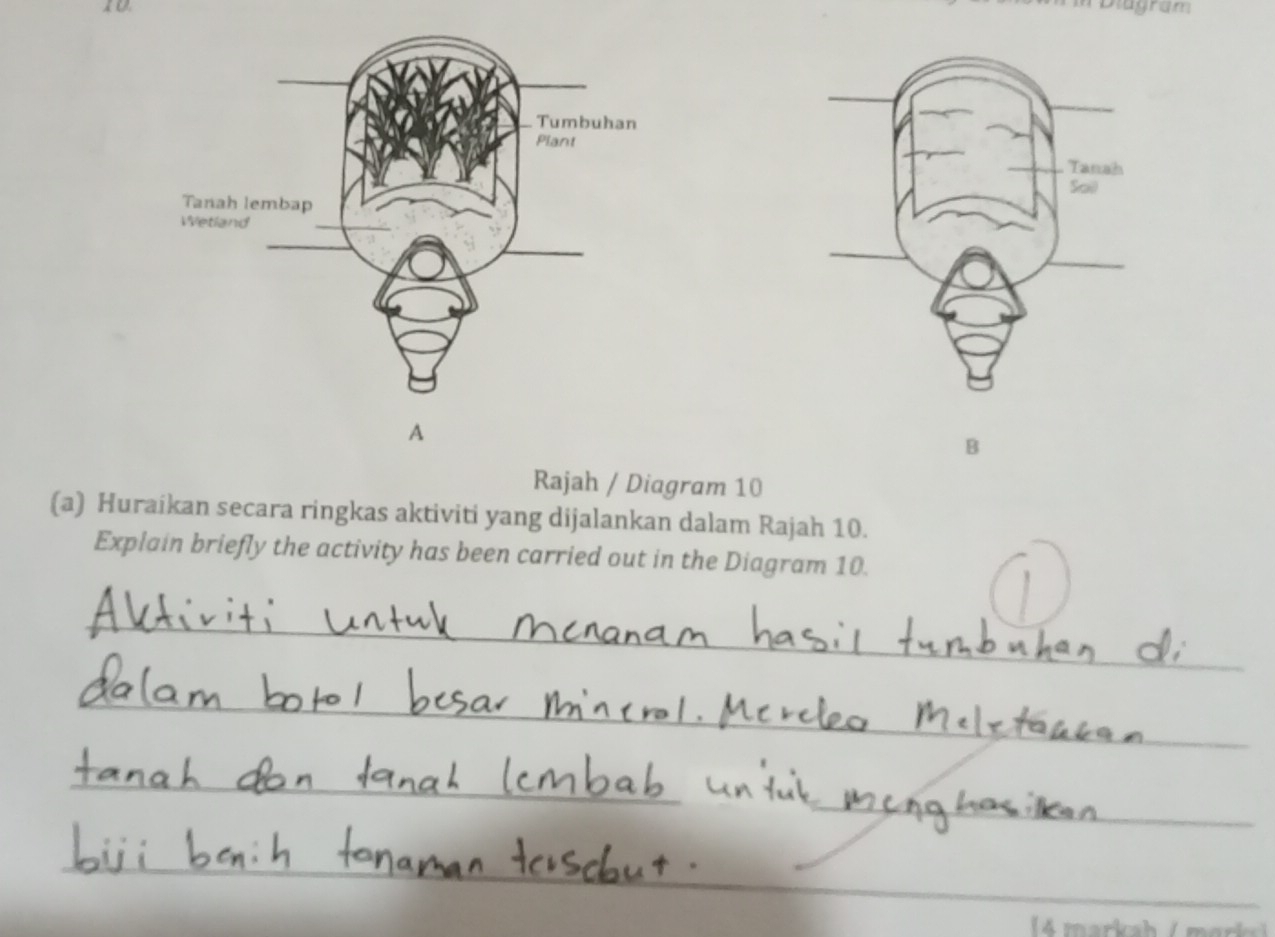 10.
in Diagram
Tumbuhan
Plant
Tanah lembap
Wetland
Tanah
Soil
A
B
Rajah / Diagram 10
(a) Huraikan secara ringkas aktiviti yang dijalankan dalam Rajah 10.
Explain briefly the activity has been carried out in the Diagram 10.
1
Aktiviti untuk menanam hasil tumbuhan di
dalam botol besar mineral. Mereka meletakkan
tanah dan tanah lembab untuk menghasilkan
biji benih tanaman tersebut.
[4 markah / marks]